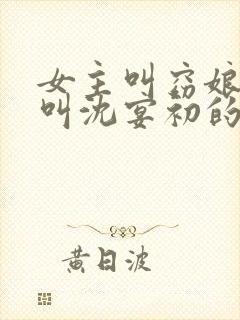 女主叫窈娘
叫沈宴初的
黄日波